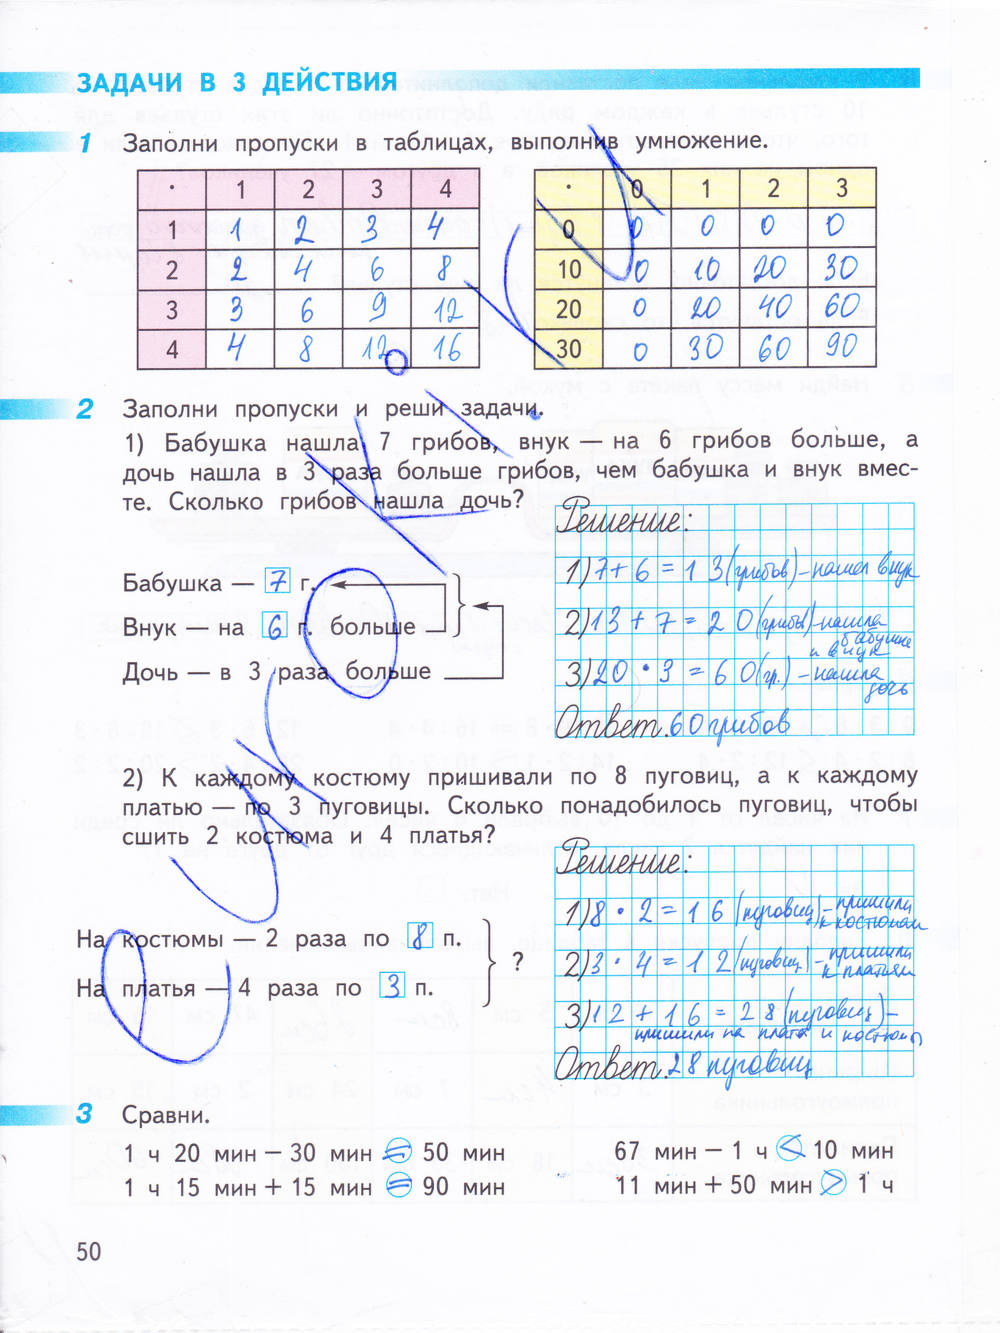 ЗАДАЧИ В 3 ДЕЙСТВИЯ
1 Заполни пропуски в таблицах, выполнив умножение.
· 1 2 3 4
1 1 2 3 4
2 2 4 6 8
3 3 6 9 12
4 4 8 12 16
· 0 1 2 3
0 0 0 0 0
10 0 10 20 30
20 0 20 40 60
30 0 30 60 90
2 Заполни пропуски и реши задачи.
1) Бабушка нашла 7 грибов, внук — на 6 грибов больше, а
дочь нашла в 3 раза больше грибов, чем бабушка и внук вмес-
те. Сколько грибов нашла дочь?
Бабушка — 7 г.
Внук — на 6 г. больше
Дочь — в 3 раза больше
Решение:
1) 7 + 6 = 13 (грибов) – нашел внук
2) 13 + 7 = 20 (грибы) – нашла
бабушка
и внук
3) 20 · 3 = 60 (гр.) – нашла
дочь
Ответ. 60 грибов
2) К каждому костюму пришивали по 8 пуговиц, а к каждому
платью — по 3 пуговицы. Сколько понадобилось пуговиц, чтобы
сшить 2 костюма и 4 платья?
На костюмы — 2 раза по 8 п.
На платья — 4 раза по 3 п.
?
Решение:
1) 8 · 2 = 16 (пуговиц) – пришили
к костюмам
2) 3 · 4 = 12 (пуговиц) – пришили
к платьям
3) 12 + 16 = 28 (пуговиц) –
пришили на плата и костюмы
Ответ. 28 пуговиц
3 Сравни.
1 ч 20 мин – 30 мин = 50 мин
1 ч 15 мин + 15 мин = 90 мин
67 мин – 1 ч < 10 мин
11 мин + 50 мин > 1 ч
50